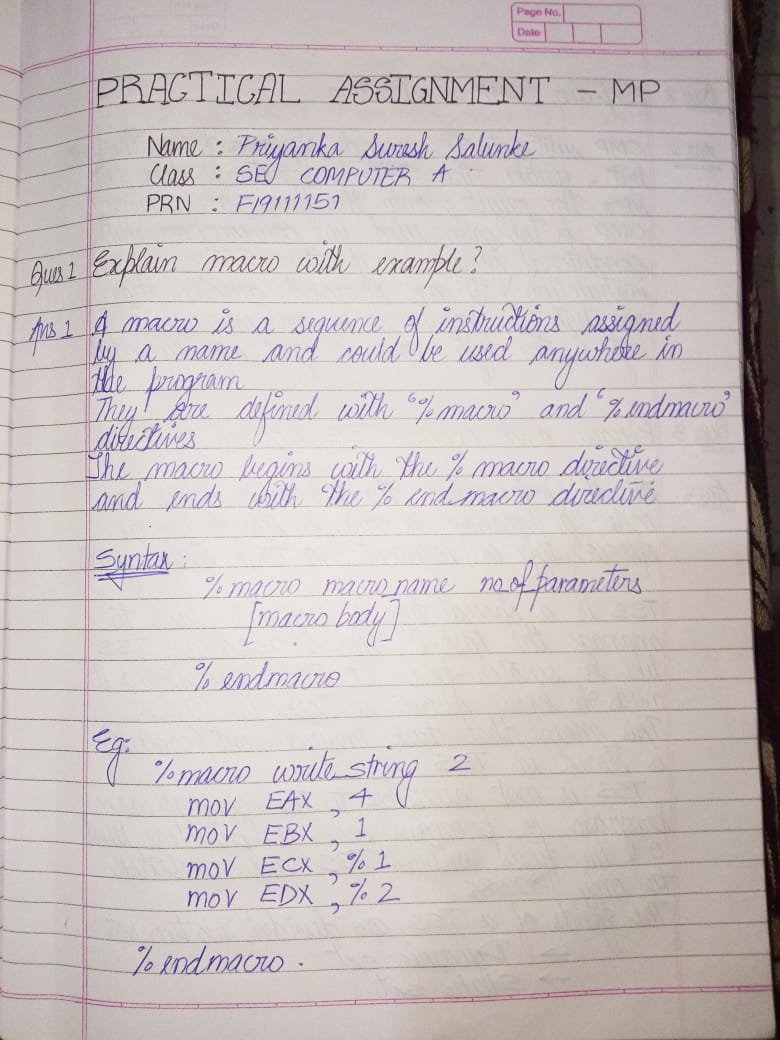 Page No.
Date
PRACTICAL ASSIGNMENT - MP
Name : Priyanka Suresh Salunke
Class : SE COMPUTER A
PRN : F19111151
Ques 1 Explain macro with example?
Ans 1 A macro is a sequence of instructions assigned
by a name and could be used anywhere in
the program
They are defined with "%macro" and "%endmacro"
directives
The macro begins with the % macro directive
and ends with the % end macro directive
Syntax :
% macro macro_name no_of parameters
[macro body]
% endmacro
Eg:
%macro write_string 2
mov EAX , 4
mov EBX , 1
mov ECX , % 1
mov EDX , % 2
% endmacro .